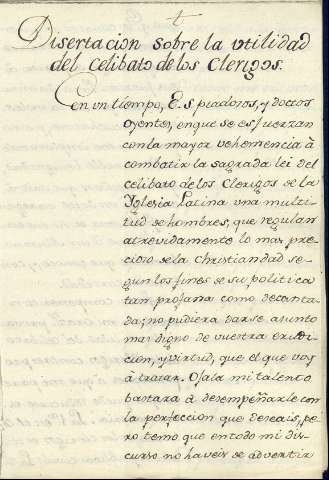 Disertacion sobre la utilidad
del Celibato de los Clerigos.
En un tiempo, E. S. piadosos, y doctos
oyentes, en que se esfuerzan
con la mayor vehemencia à
combatir la sagrada lei del
celibato de los Clerigos de la
Yglesia Latina una multi-
tud de hombres, que regulan
atrevidamente lo mas pre-
cioso de la Christiandad se-
gun los fines de su politica
tan profana como decanta-
da; no pudiera darse asunto
mas digno de vuestra erudi-
cion, y virtud, que el que voy
à tratar. Ojala mi talento
bastara à desempeñarle con
la perfeccion que deseais, pe-
ro temo que en todo mi dis-
curso no haveis de advertir